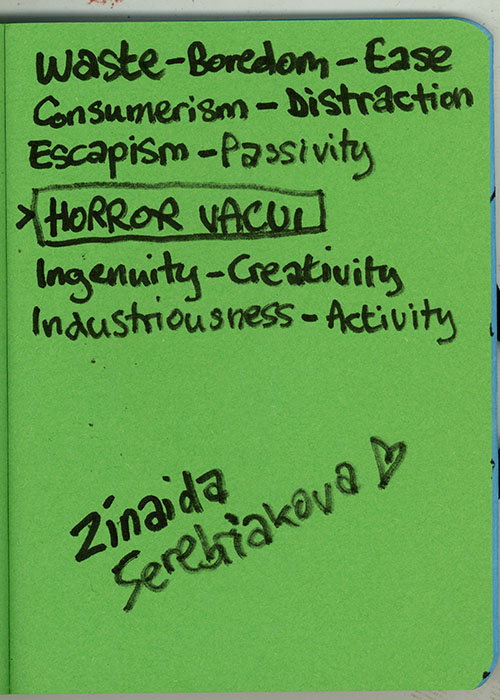 Waste - Boredom - Ease
Consumerism - Distraction
Escapism - Passivity
> HORROR VACUI
Ingenuity - Creativity
Industriousness - Activity
Zinaida
Serebriakova ♡